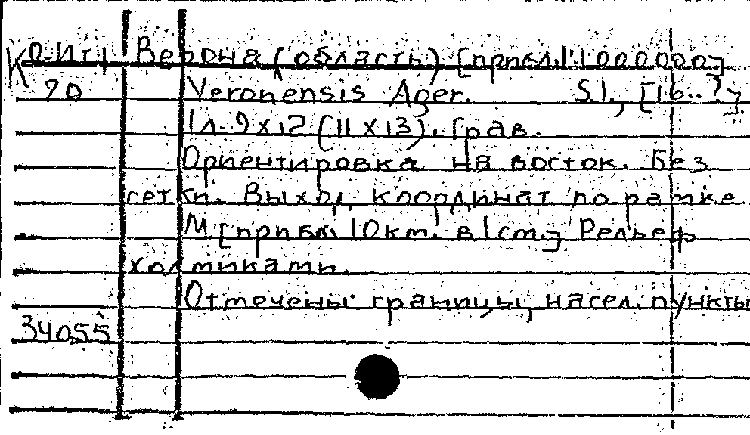 К О-Ит 1 Верона (область) [прибл. 1:1000000]
70 Veronensis Ager. S.l., [16..?]
1 л. 9 x 12 (11 x 13). Грав.
Ориентировка на восток. Без
сетки. Выход координат по рамке
М [прибл. 10км. в 1см.] Рельеф
холмиками.
Отмечены: границы, насел. пункты
34055